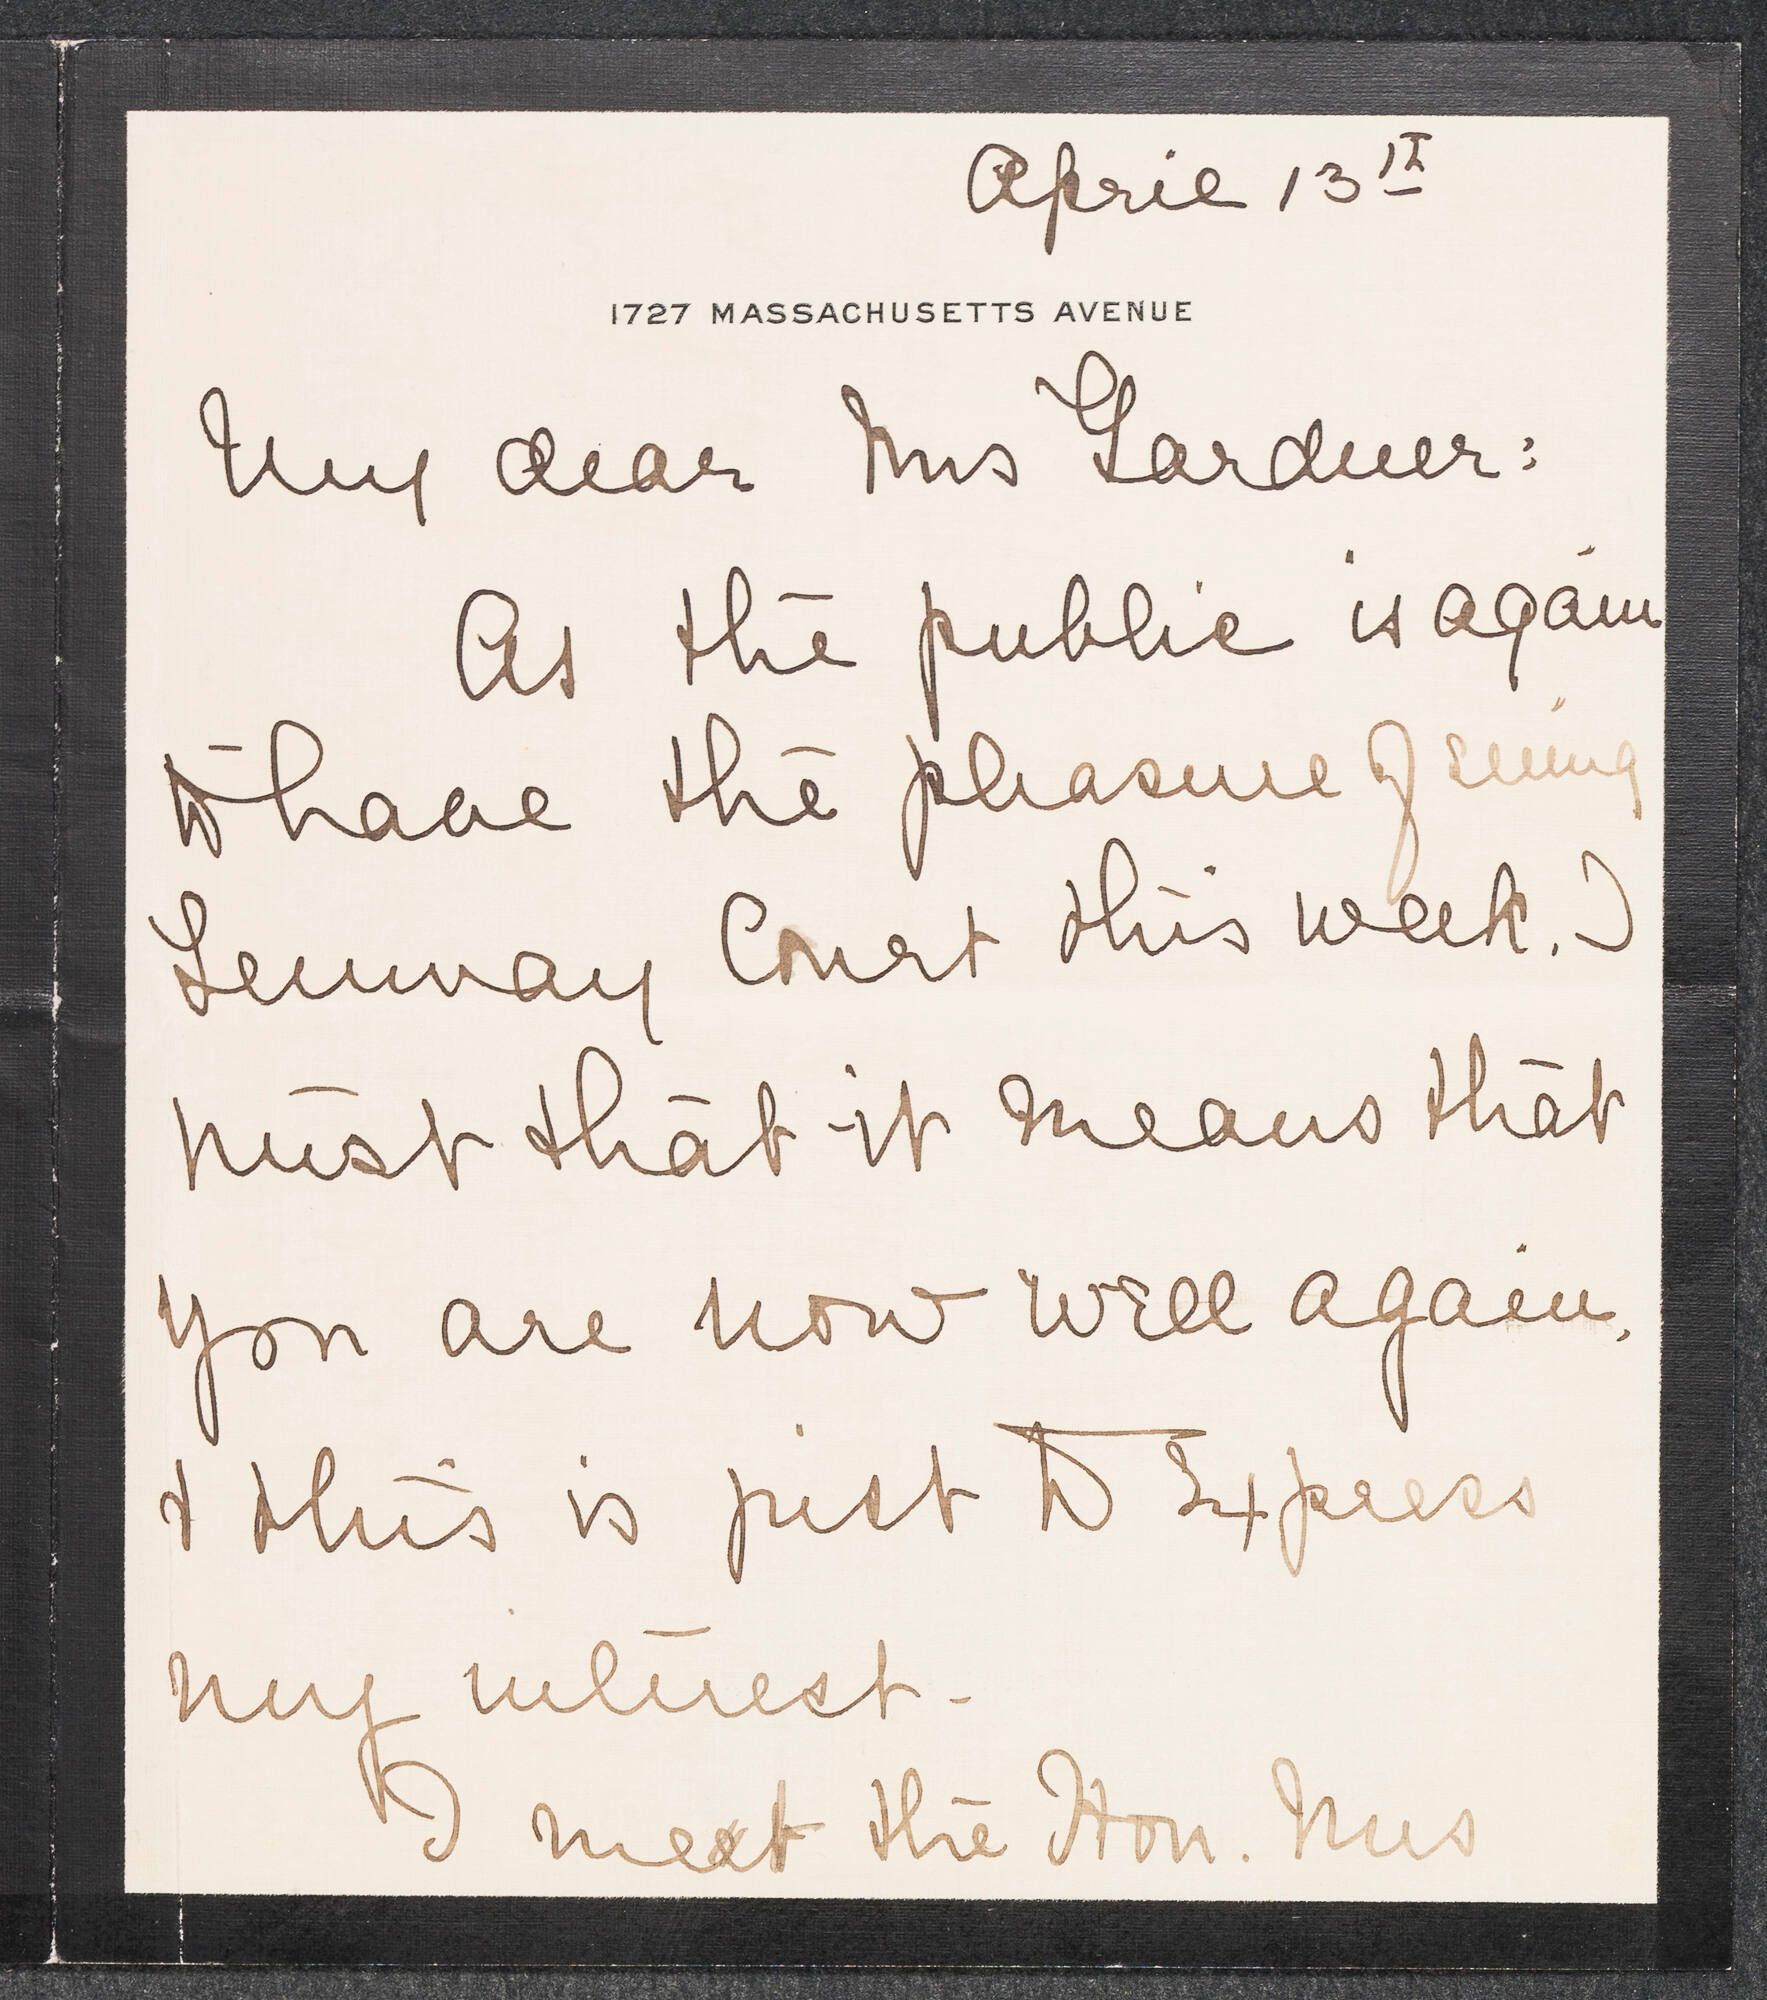 April 13th
1727 MASSACHUSETTS AVENUE
My dear Mrs Gardner:
As the public is again
to have the pleasure of seeing
Fenway Court this week. I
trust that it means that
you are now well again.
& this is just to Express
my interest-
I meet the Hon. Mrs